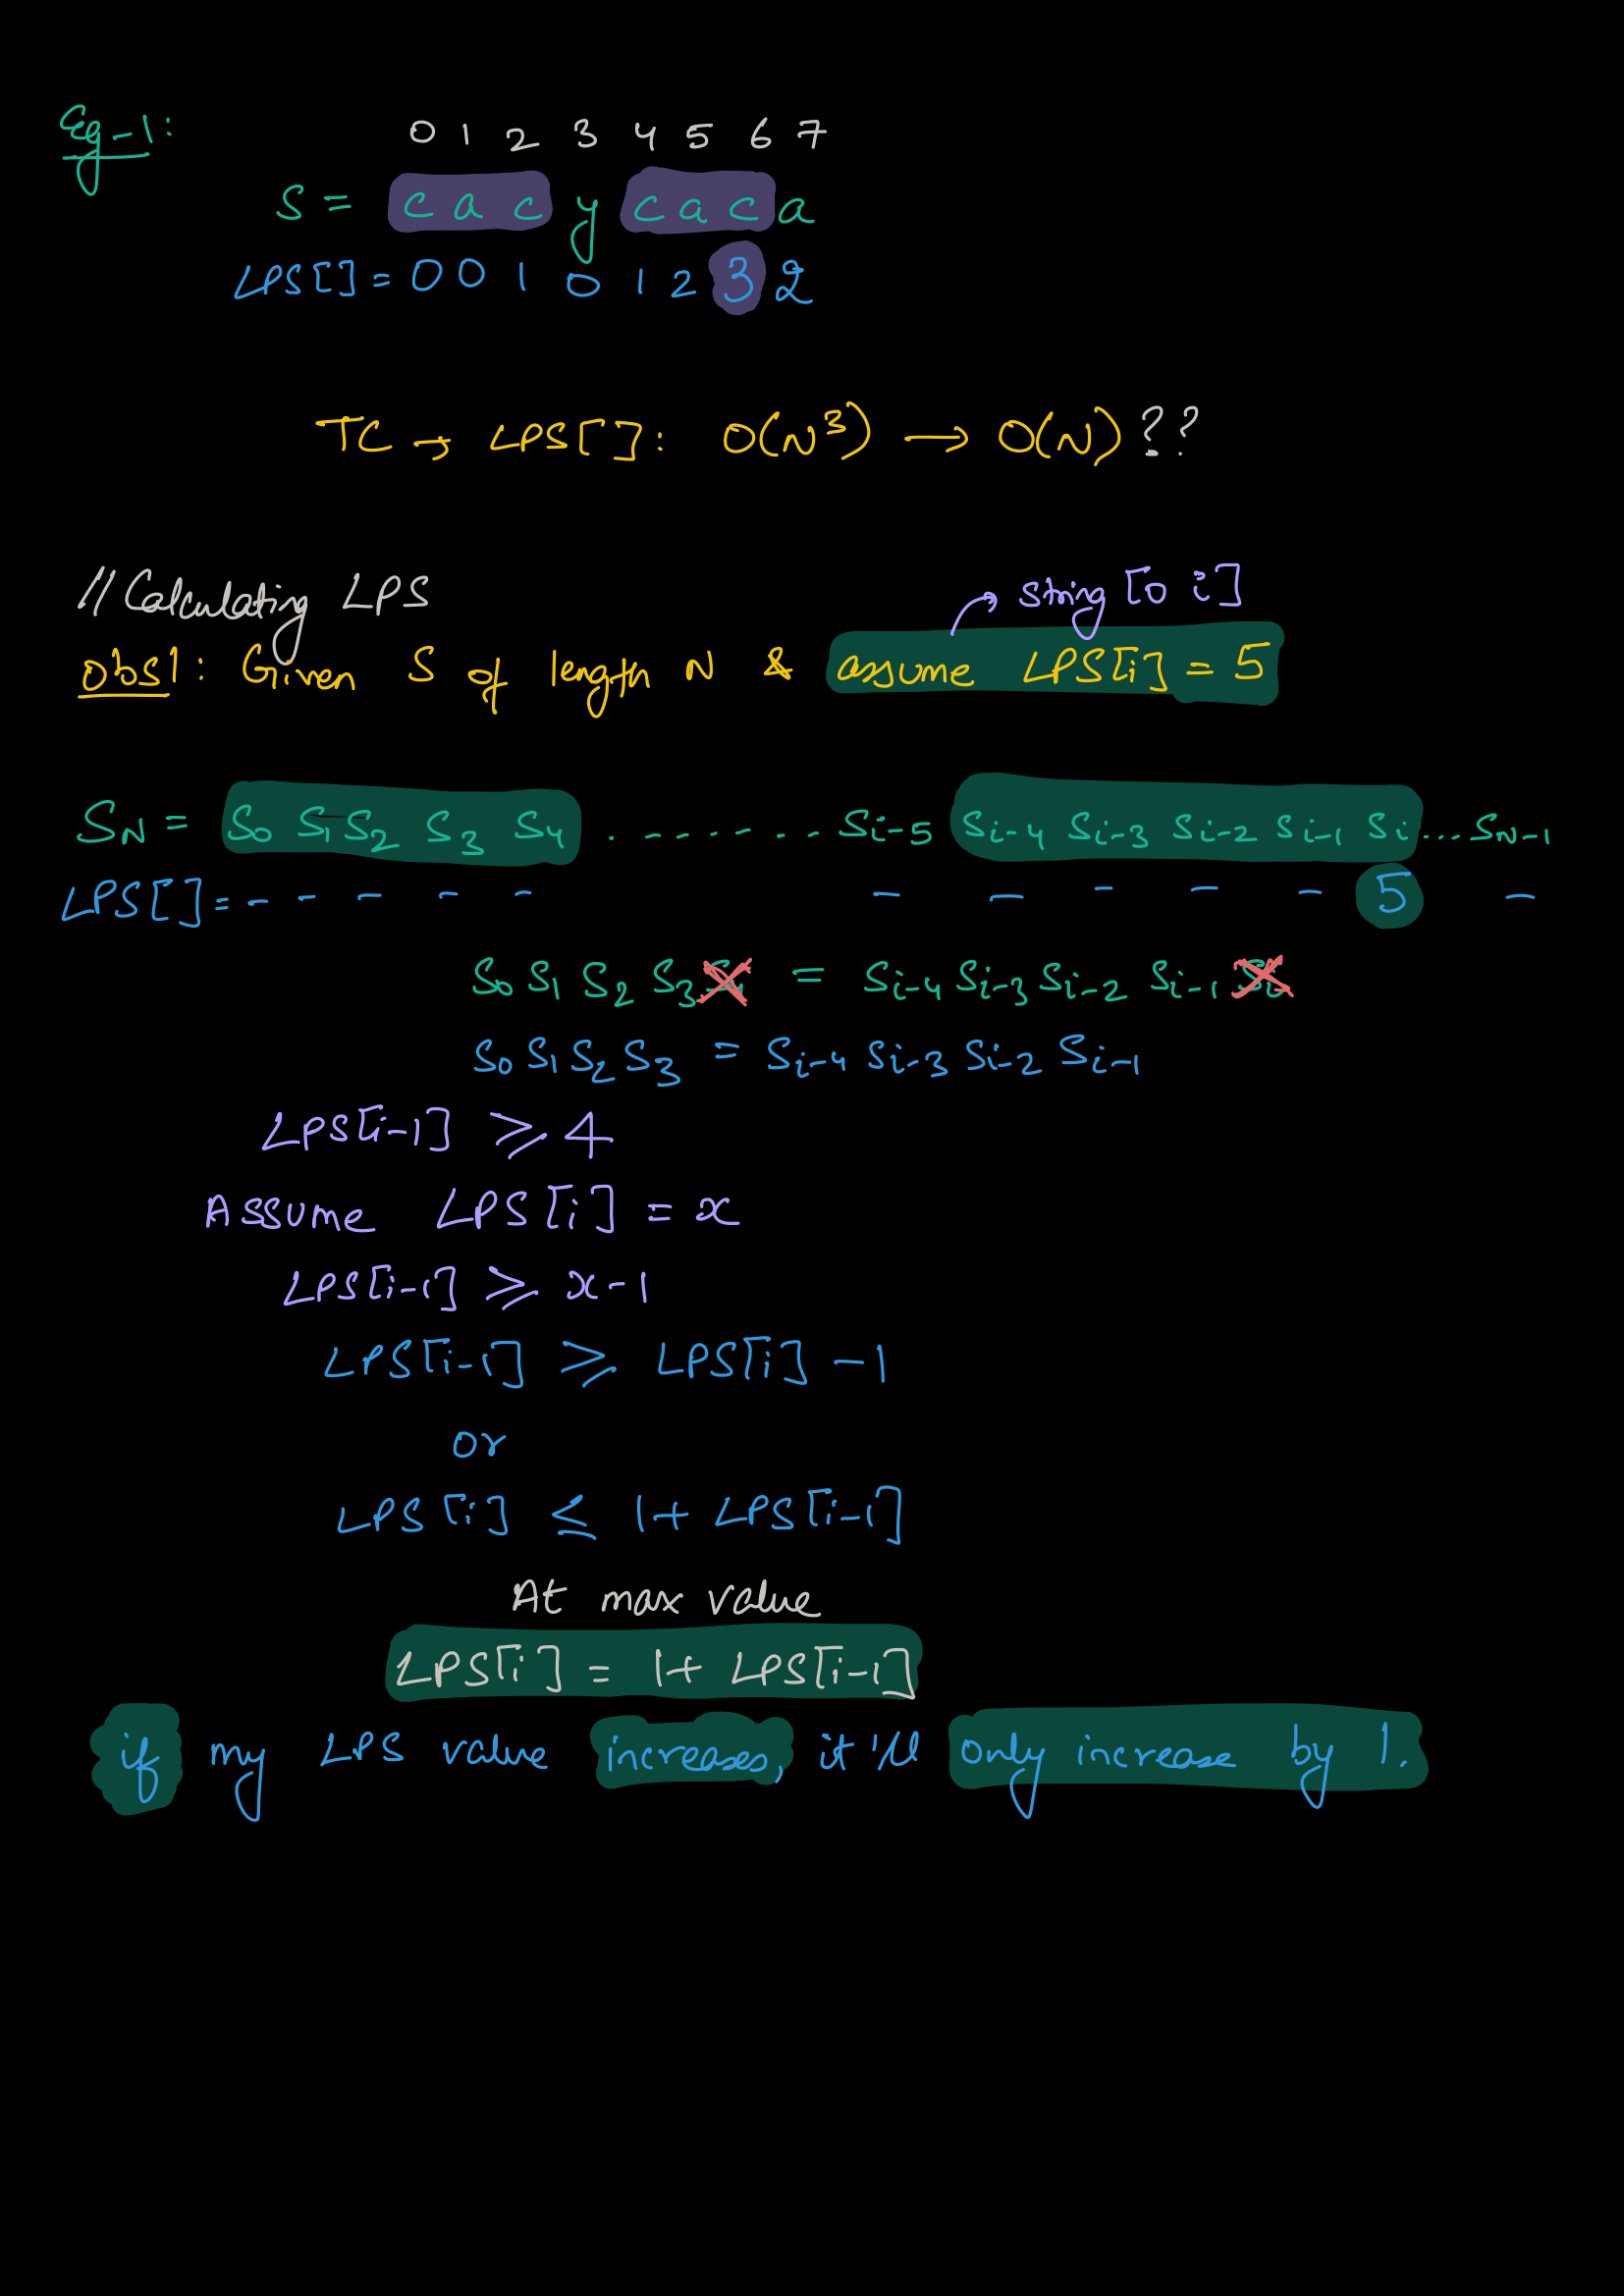 Eg-1:
0 1 2 3 4 5 6 7
S = c a c y c a c a
LPS[] = 0 0 1 0 1 2 3 2
TC → LPS[]: O(N³) → O(N)??
// Calculating LPS
→ string [0 i]
obs1: Given S of length N & assume LPS[i] = 5
S_N = S₀ S₁ S₂ S₃ S₄ . - - - . . - - . . . S_{i-5} S_{i-4} S_{i-3} S_{i-2} S_{i-1} S_i ... S_{N-1}
LPS[] = - - - - - - - - - - 5 -
S₀ S₁ S₂ S₃ S₄ = S_{i-4} S_{i-3} S_{i-2} S_{i-1} S_i
S₀ S₁ S₂ S₃ = S_{i-4} S_{i-3} S_{i-2} S_{i-1}
LPS[i-1] ⩾ 4
Assume LPS[i] = x
LPS[i-1] ⩾ x-1
LPS[i-1] ⩾ LPS[i] - 1
or
LPS[i] ≤ 1+ LPS[i-1]
At max value
LPS[i] = 1+ LPS[i-1]
if my LPS value increases, it'll only increase by 1.